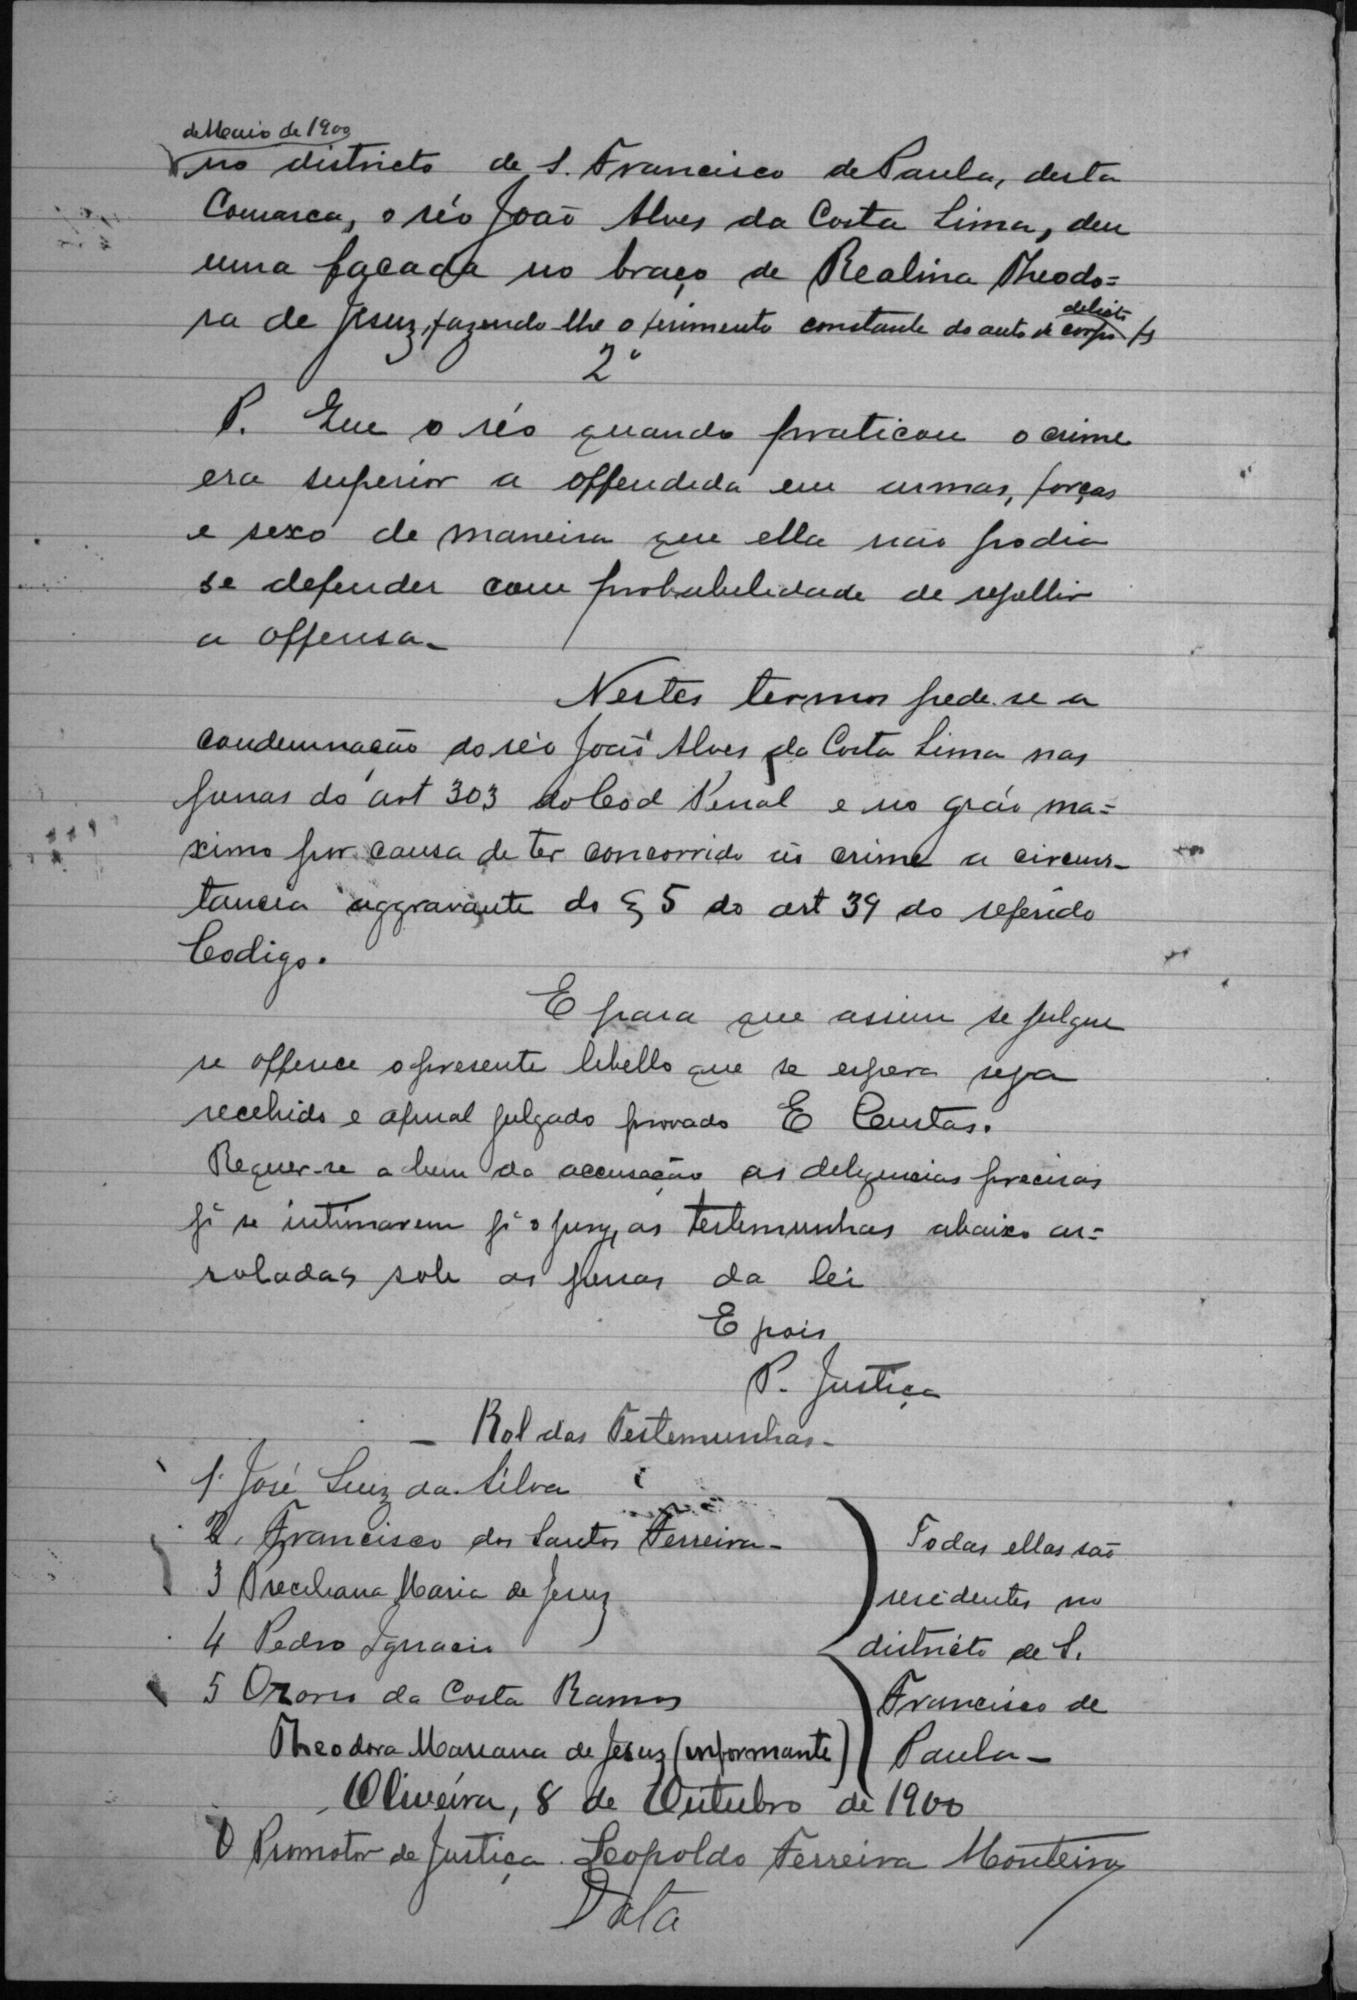 de Maio de 1900
no districto de S. Francisco de Paula, desta
Comarca, o réo João Alves da Costa Lima, deu
uma facada no braço de Realina Theodo=
ra de Jesuz, fazendo-lhe o ferimento constante do auto de corpo delicto fs
2º
P. Que o réo quando praticou o crime
era superior a offendida em armas, forças
e sexo de maneira que ella não podia
se defender com probabelidade de repellir
a offensa_
Nestes termos pede-se a
condemnação do réo João Alves da Costa Lima nas
penas do art 303 do Cod Penal e no gráo ma=
ximo por causa de ter concorrido ao crime a circuns-
tancia aggravante do § 5 do art 39 do referido
Codigo.
E para que assim se julgue
se offerece o presente libello que se espera seja
recebido e afinal julgado provado E Custas.
Requer-se a bem da accusação as deligencias precisas
pª se intimarem pª o jury, as testemunhas abaixo ar=
roladas sob as penas da lei
E pois
P. Justiça
_ Rol das Testemunhas_
1. José Luiz da Silva
2. Francisco dos Santos Ferreira_ Todas ellas são
3 Preciliana Maria de Jesuz residentes no
4 Pedro Ignacio districto de S.
5 Ozorio da Costa Ramos Francisco de
Theodora Mariana de Jesuz (informante) Paula_
Oliveira, 8 de Outubro de 1900
O Promotor de Justiça Leopoldo Ferreira Monteiro
Data